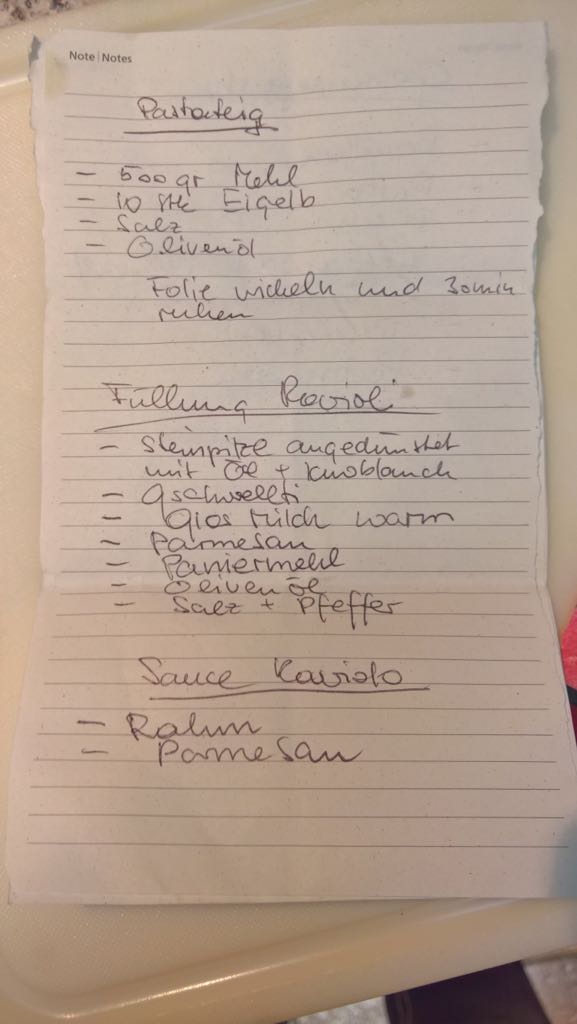 Note | Notes
Pastateig
- 500gr Mehl
- 10 Stk Eigelb
- Salz
- Olivenöl
Folie wickeln und 30min
ruhen
Füllung Ravioli
- Steinpilze angedünstet
mit Öl + Knoblauch
- Gschwellti
- Glas Milch warm
- Parmesan
- Paniermehl
- Olivenöl
- Salz + Pfeffer
Sauce Raviolo
- Rahm
- Parmesan